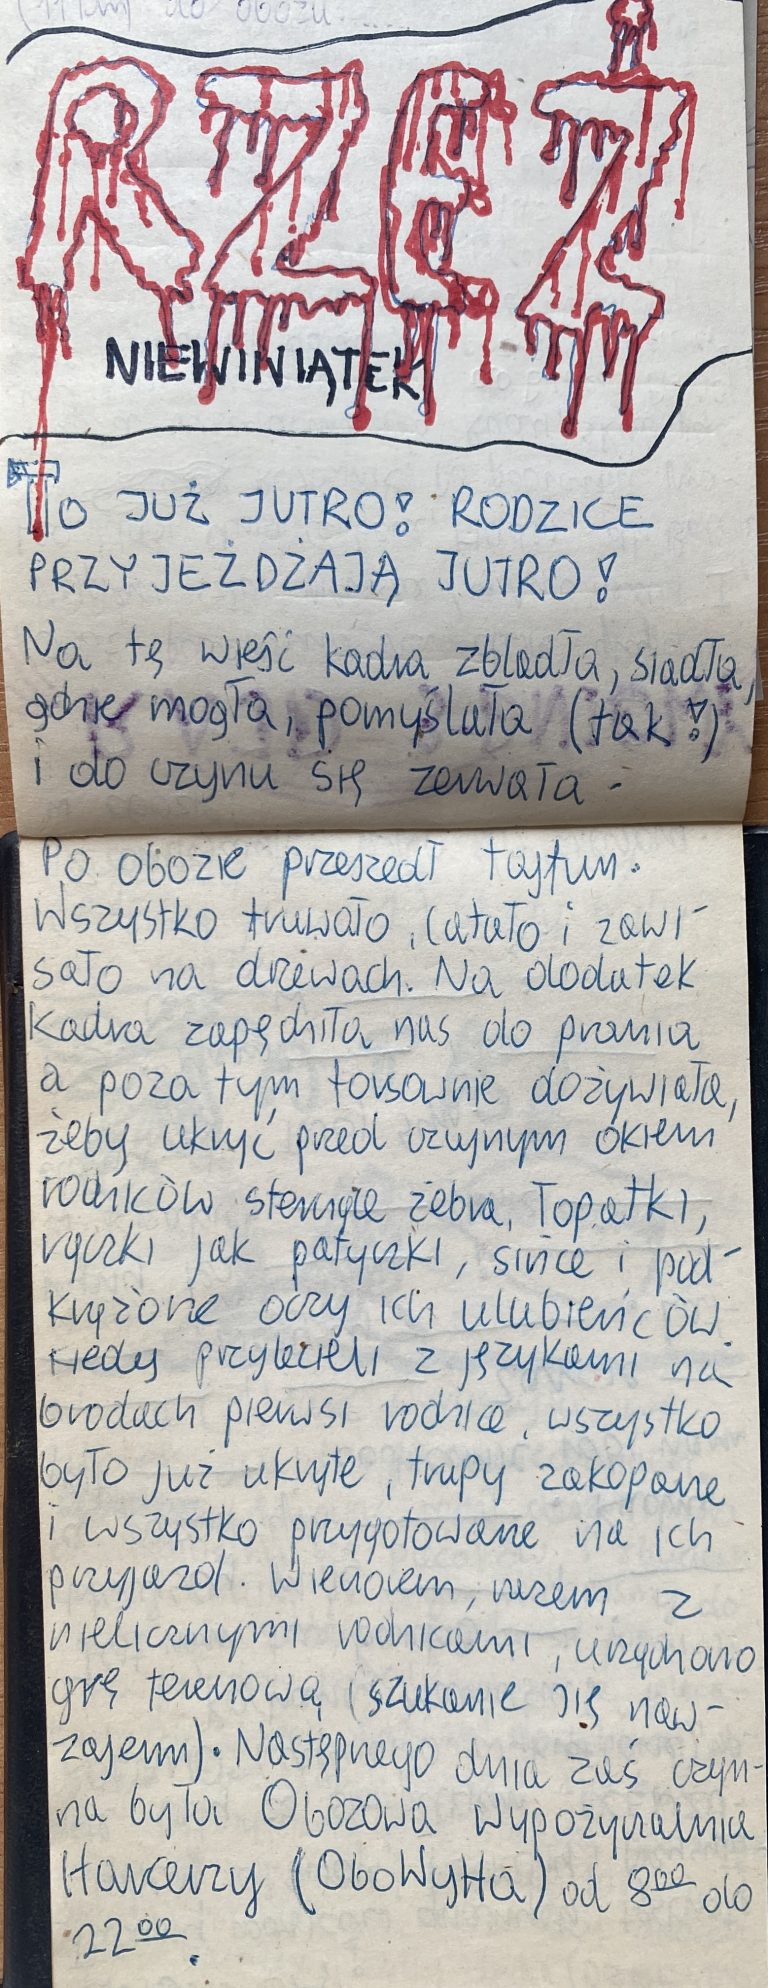 (11 km) do obozu.....
RZEŹ
NIEWINIĄTEK
TO JUŻ JUTRO! RODZICE
PRZYJEŻDŻAJĄ JUTRO!
Na tę wieść kadra zbladła, siadła,
gdzie mogła, pomyślała (tak!)
i do czynu się zerwała -
Po obozie przeszedł tajfun.
Wszystko fruwało, latało i zawi-
sało na drzewach. Na dodatek
kadra zapędziła nas do prania
a poza tym forsownie dożywiała,
żeby ukryć przed czujnym okiem
rodziców sterczące żebra, łopatki,
rączki jak patyczki, sińce i pod-
krążone oczy ich ulubieńców.
Kiedy przylecieli z językami na
brodach pierwsi rodzice, wszystko
było już ukryte, trupy zakopane
i wszystko przygotowane na ich
przyjazd. Wieczorem, razem z
nielicznymi rodzicami, urządzono
grę terenową (szukanie się naw-
zajem). Następnego dnia zaś czyn-
na była Obozowa Wypożyczalnia
Harcerzy (OboWyHa) od 8⁰⁰ do
22⁰⁰.